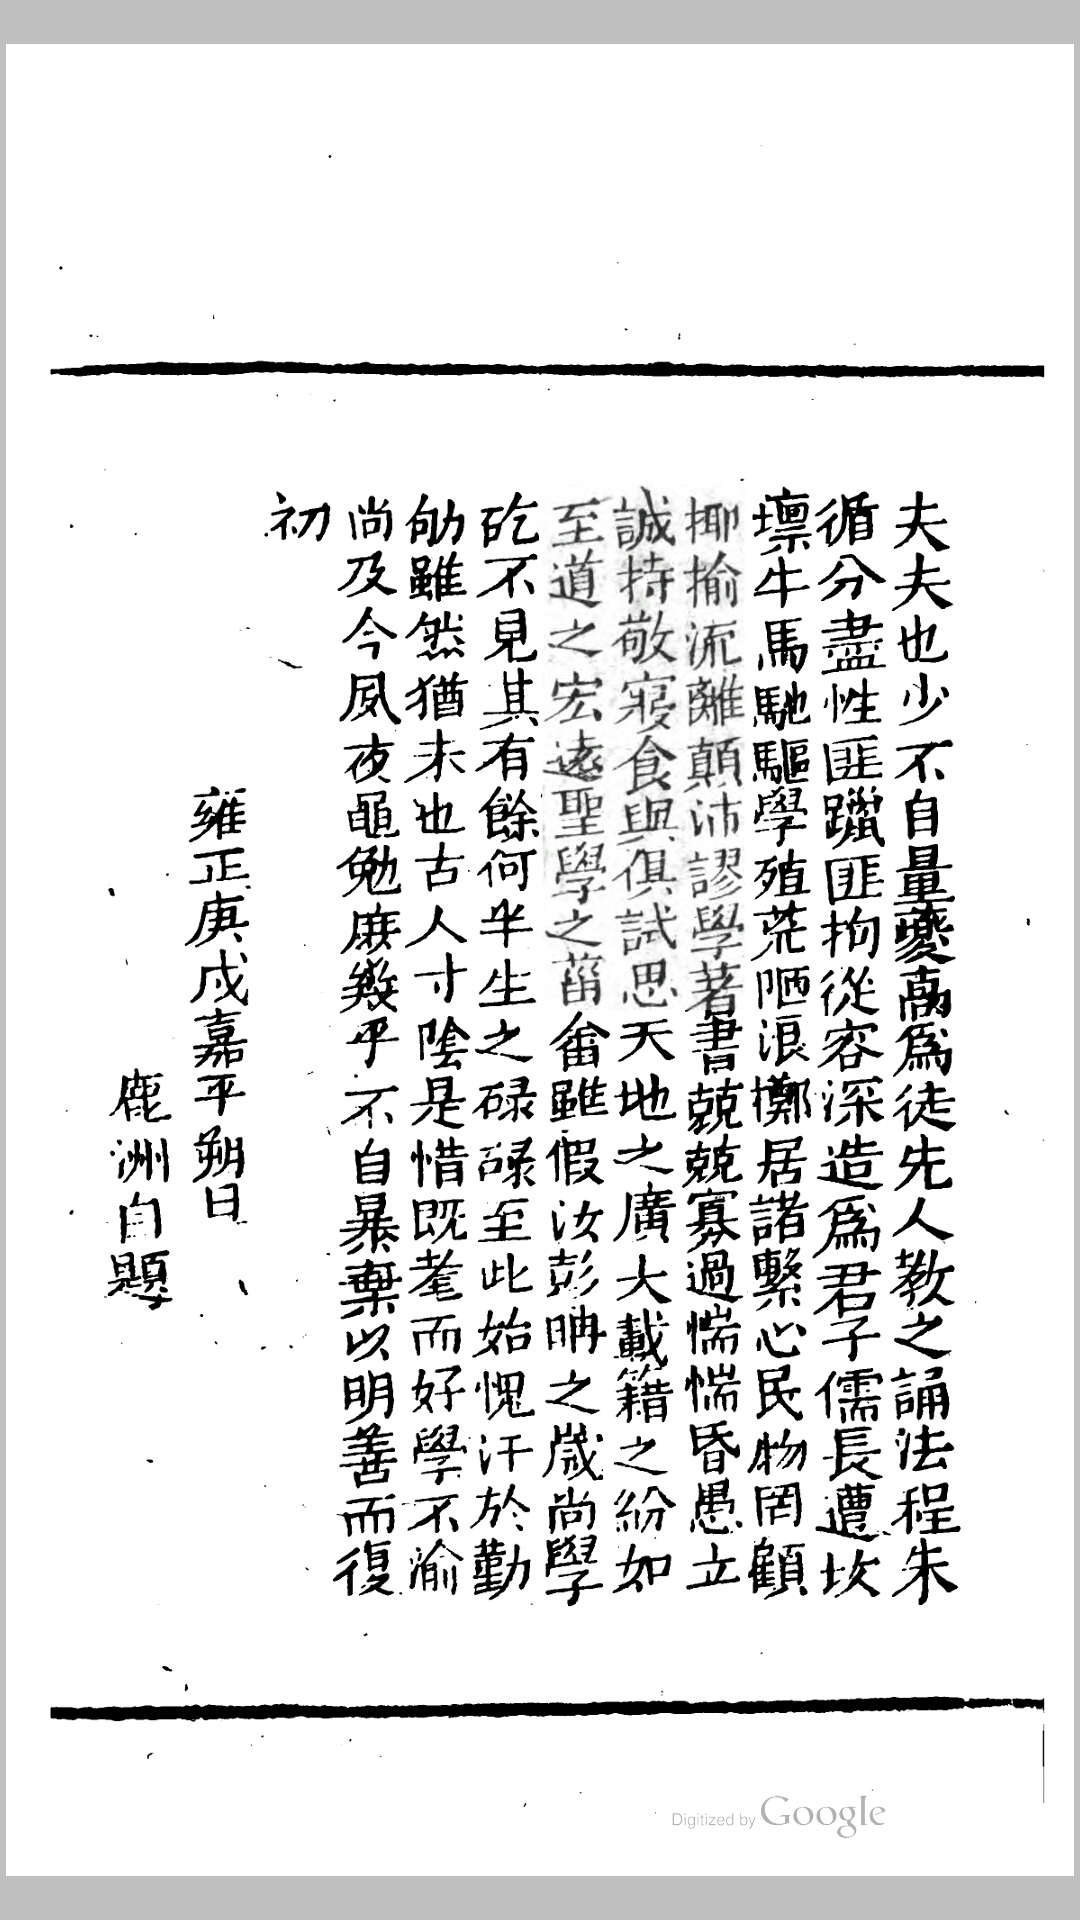 夫夫也少不自量夔禼爲徒先人教之誦法程朱
循分盡性匪躐匪拘從容深造爲君子儒長遭坎
壈牛馬馳驅學殖荒陋浪擲居諸繫心民物罔顧
揶揄流離顛沛謬學著書兢兢寡過惴惴昏愚立
誠持敬寢食與俱試思天地之廣大載籍之紛如
至道之宏遠聖學之菑畬雖假汝彭聃之歲尚學
矻不見其有餘何半生之碌碌至此始愧汗於勤
劬雖然猶未也古人寸陰是惜既耄而好學不渝
尚及今夙夜黽勉庶幾乎不自暴棄以明善而復
初
雍正庚戌嘉平朔日
鹿洲自題
Digitized by Google